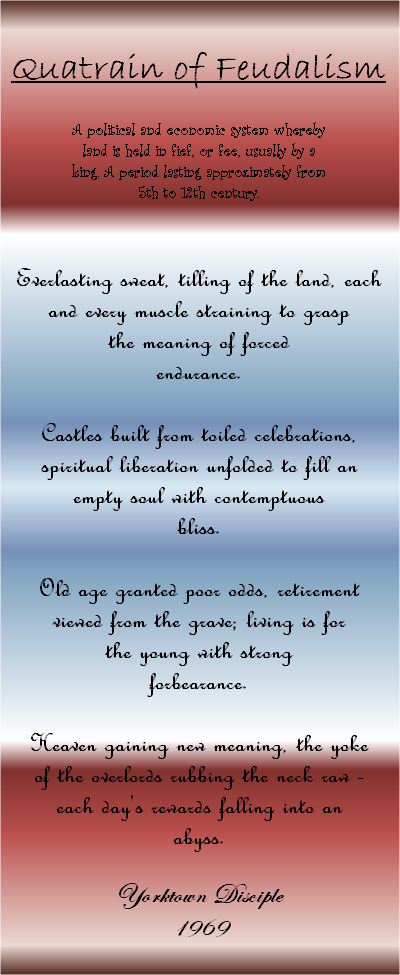 Quatrain of Feudalism
A political and economic system whereby
land is held in fief, or fee, usually by a
king. A period lasting approximately from
5th to 12th century.
Everlasting sweat, tilling of the land, each
and every muscle straining to grasp
the meaning of forced
endurance.
Castles built from toiled celebrations,
spiritual liberation unfolded to fill an
empty soul with contemptuous
bliss.
Old age granted poor odds, retirement
viewed from the grave; living is for
the young with strong
forbearance.
Heaven gaining new meaning, the yoke
of the overlords rubbing the neck raw -
each day's rewards falling into an
abyss.
Yorktown Disciple
1969